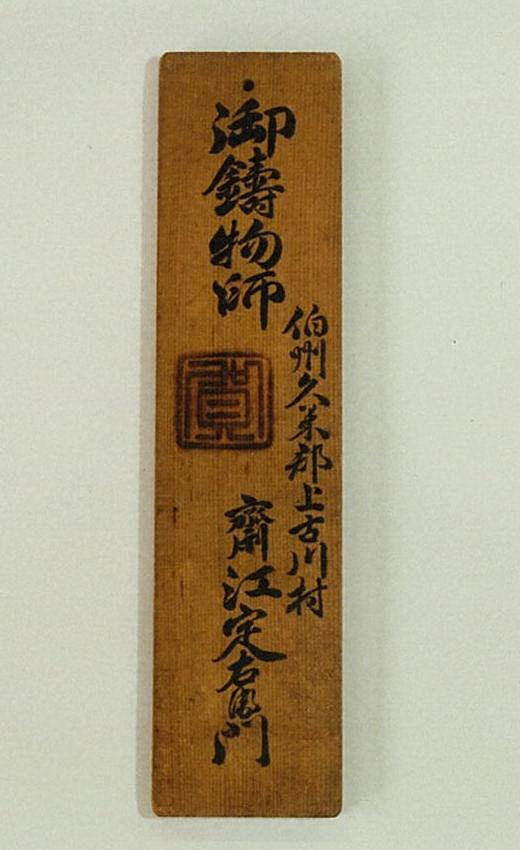 伯州久米郡上古川村
御鑄物師
齋江定右衛門